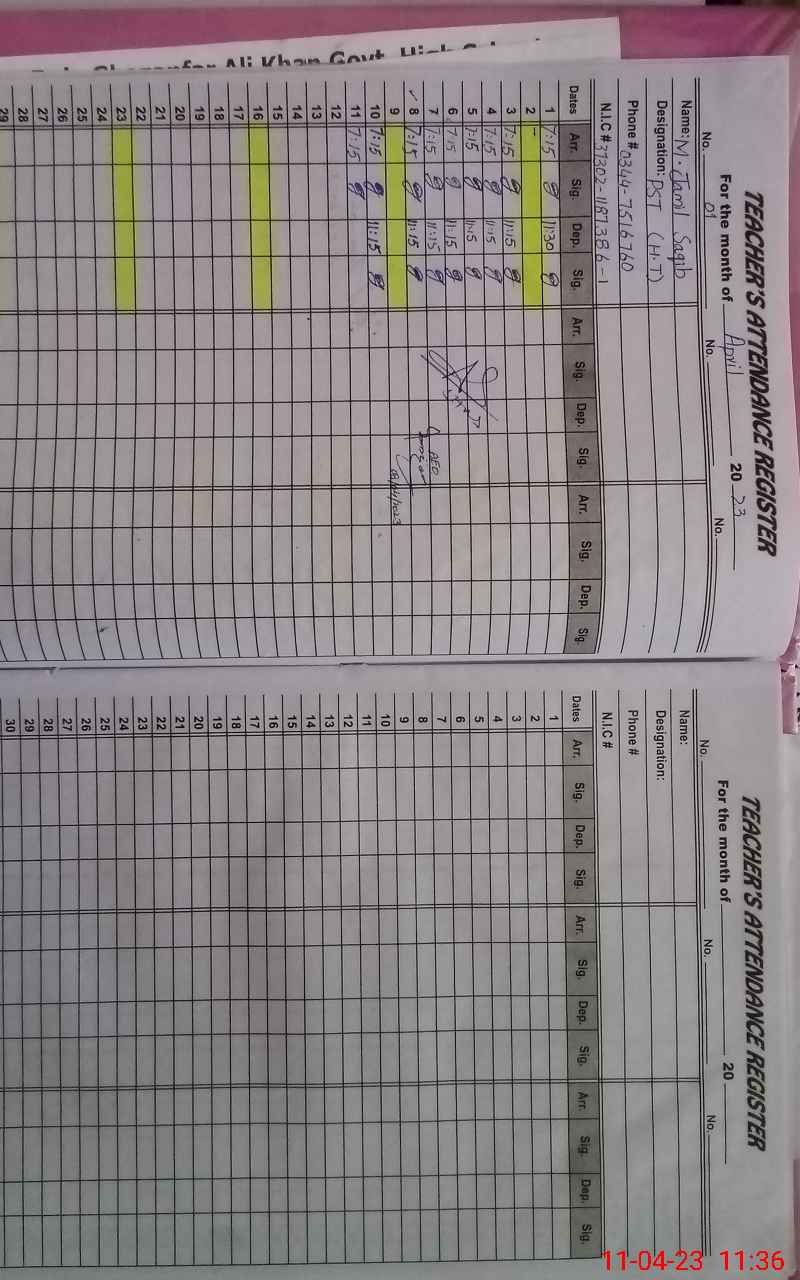 Ali Khan Govt. High
TEACHER'S ATTENDANCE REGISTER
For the month of April 20 23
No. 01 No. No.
Name: M. Jamil Saqib
Designation: PST (H.T)
Phone # 0344-7516760
N.I.C # 37302-1187386-1
Dates Arr. Sig. Dep. Sig. Arr. Sig. Dep. Sig. Arr. Sig. Dep. Sig.
1 7:15 11:30
2 -
3 7:15 11:15
4 7:15 11:15
5 7:15 11:15
6 7:15 11:15
7 7:15 11:15
8 7:15 11:15
9
10 7:15 11:15
11 7:15
12
13
14
15
16
17
18
19
20
21
22
23
24
25
26
27
28
29
AEO
08/04/2023
TEACHER'S ATTENDANCE REGISTER
For the month of 20
No. No. No.
Name:
Designation:
Phone #
N.I.C #
Dates Arr. Sig. Dep. Sig. Arr. Sig. Dep. Sig. Arr. Sig. Dep. Sig.
1
2
3
4
5
6
7
8
9
10
11
12
13
14
15
16
17
18
19
20
21
22
23
24
25
26
27
28
29
30
11-04-23 11:36